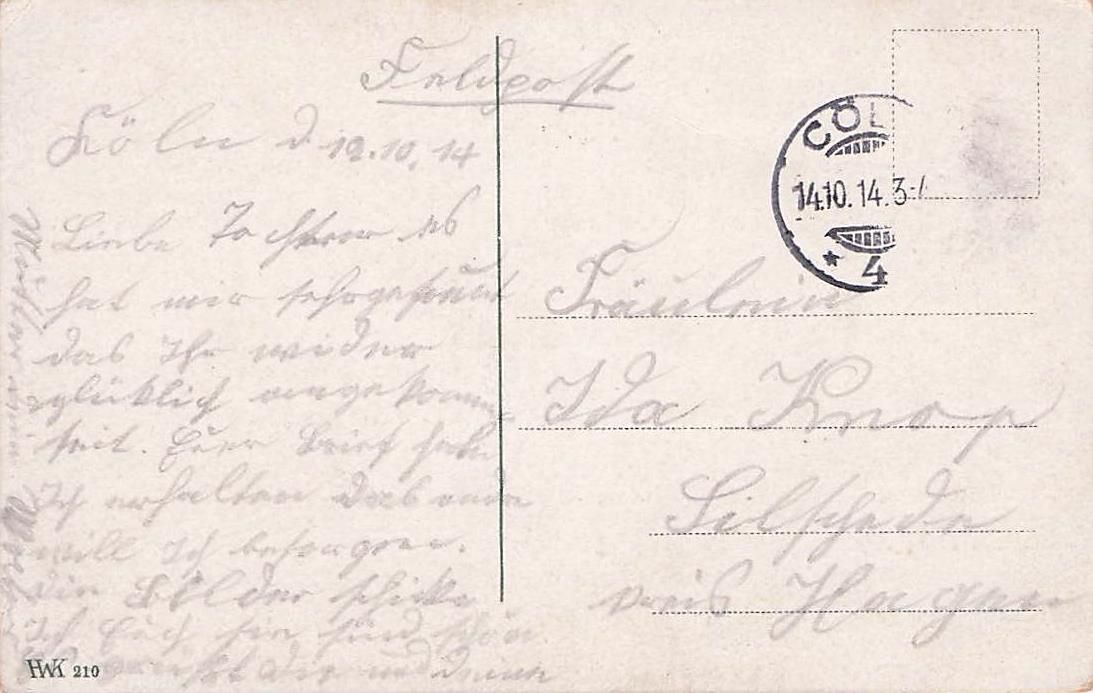 Feldpost
Köln d 12.10.14
Liebe Tochter es
hat mir sehr gefreut
das Ihr wieder
glücklich angekommen
seit. Euer Brief habe
Ich erhalten das andere
will Ich besorgen.
die Bilder schicke
Ich Euch sie sind schön
dir und deine
Mutter
CÖL
14.10.14.3-4
* 4
Fräulein
Ida Knop
Silschede
kreis Hagen
HWK 210